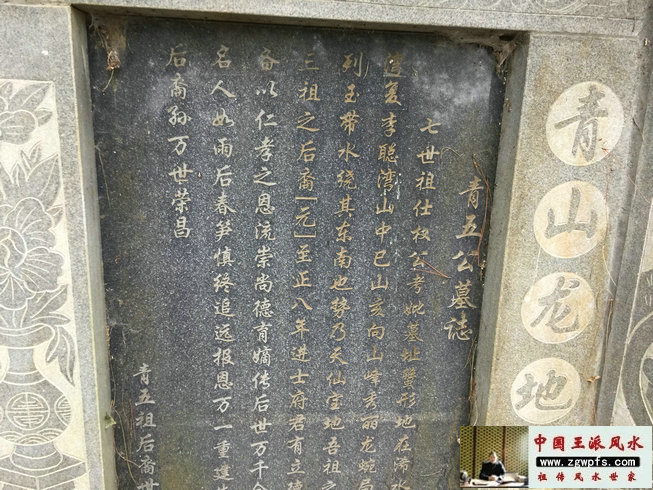 青五公墓誌
七世祖仕权公考妣墓址蟹形地在浠水
道夏李聪湾山中巳山亥向山峰秀丽龙蜿
列玉带水绕其东南也势乃天仙宝地吾祖
三祖之后裔「元」至正八年进士府君有立德
各以仁孝之恩流崇尚德育嫡传后世万千
名人如雨后春笋慎终追远报恩万一重建
后裔孙万世荣昌
青五祖后裔世
青山龙地
中国王派风水
www.zgwpfs.com
祖传风水世家